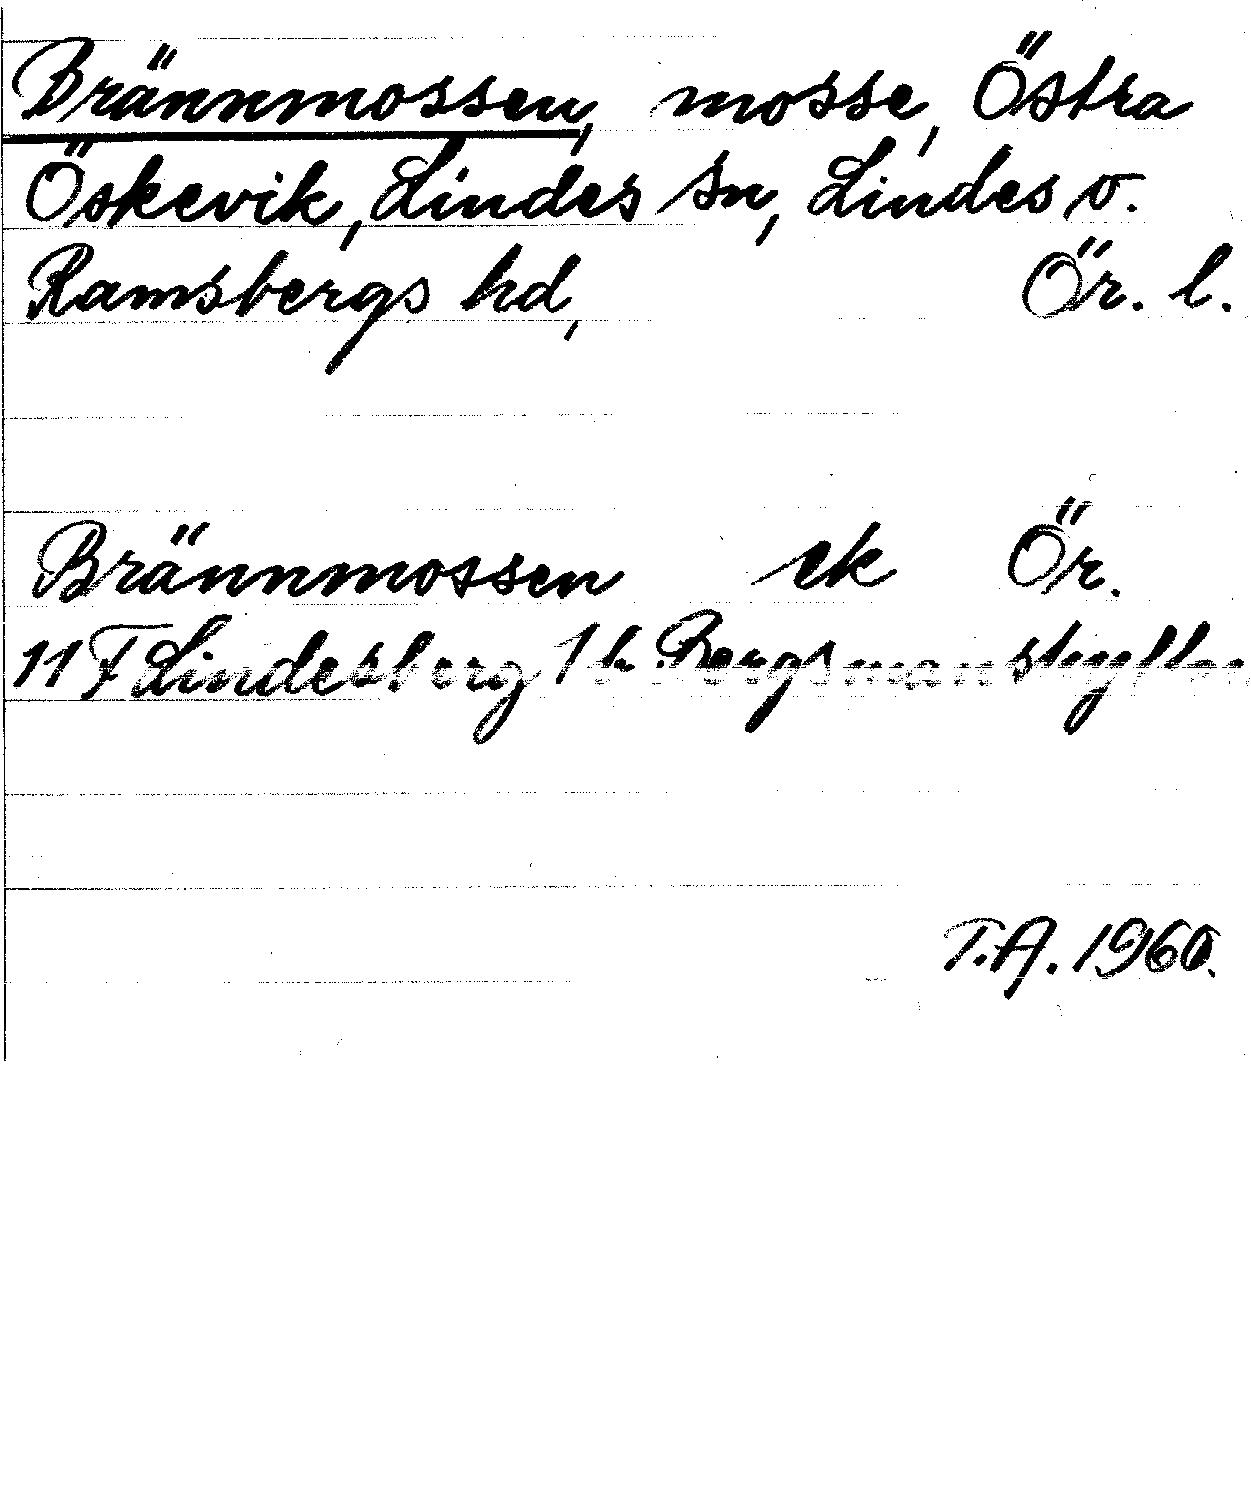 Brännmossen, mosse, Östra
Öskevik, Lindes sn, Lindes o.
Ramsbergs hd, Ör. l.
Brännmossen ek Ör.
11 F Lindesberg 1 h Bergsmanshyttan
T.A. 1960.